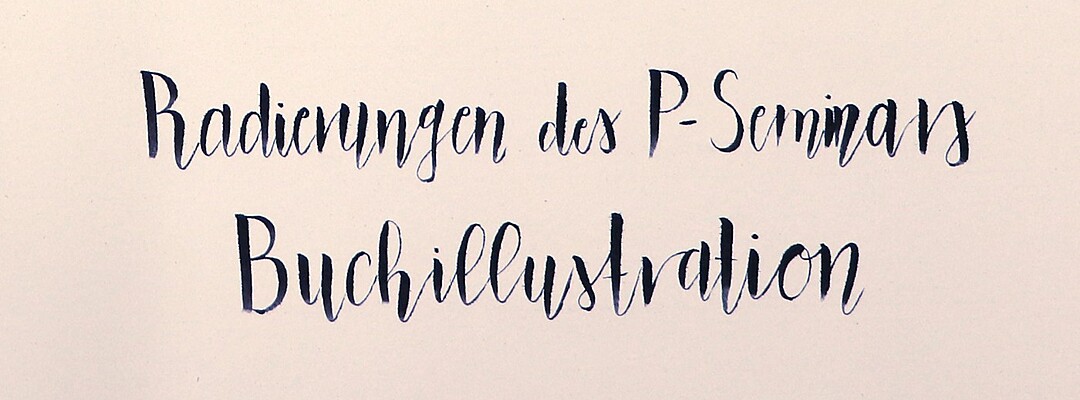 Radierungen des P-Seminars
Buchillustration